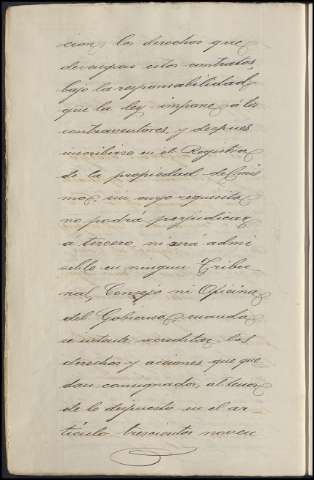 cion, los derechos que
devengan estos contratos,
bajo la responsabilidad
que la ley impone á los
contraventores, y despues
inscribirse en el Registro
de la propiedad de
sin cuyo requisito
no podrá perjudicar
a tercero, ni será admi
sible en ningun Tribu-
nal, Consejo ni Oficina
del Gobierno, cuando
se intente acreditar los
derechos y acciones que que
dan consignados, al tenor
de lo dispuesto en el ar-
tículo trescientos noven